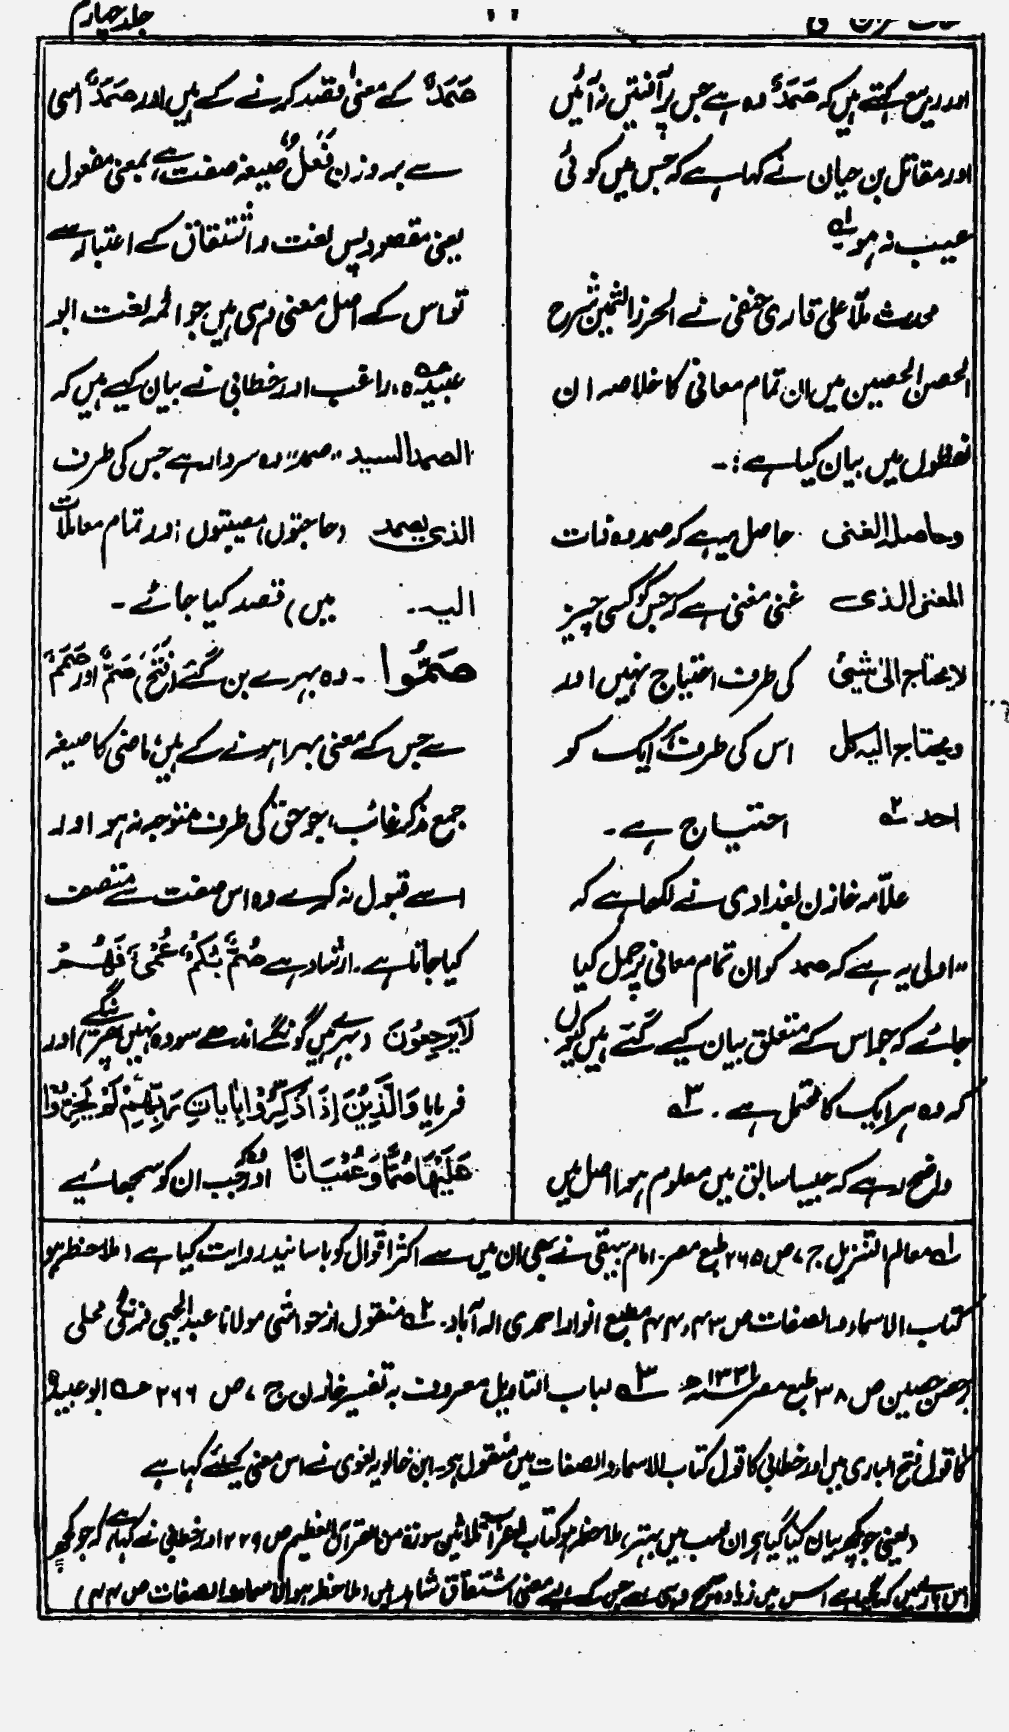 جلد چہارم
اور ربیع کہتے ہیں کہ صَمَدٌ وہ ہے جس پر آفتیں نہ آئیں
اور مقاتل بن حیان نے کہا ہے کہ جس میں کوئی
عیب نہ ہو ۱ے
محدث ملّا علی قاری حنفی نے الحرز الثمین شرح
الحصن الحصین میں ان تمام معانی کا خلاصہ ان
لفظوں میں بیان کیا ہے :-
وحاصلہ الغنی حاصل یہ ہے کہ صمد وہ ذات
المغنی الذی غنی مغنی ہے کہ جس کو کسی چیز
لا یحتاج الیٰ شیئ کی طرف احتیاج نہیں اور
ویحتاج الیہ کل اس کی طرف ہر ایک کو
احد ۲ے احتیاج ہے ۔
علّامہ خازن بغدادی نے لکھا ہے کہ
"اولیٰ یہ ہے کہ صمد کو ان تمام معانی پر حمل کیا
جائے کہ جو اس کے متعلق بیان کیے گئے ہیں کیوں
کہ وہ ہر ایک کا محتمل ہے ۔ ۳ے
واضح رہے کہ جیسا سابق میں معلوم ہوا اصل میں
صَمَدٌ کے معنی قصد کرنے کے ہیں اور صَمَدٌ اسی
سے بروزن فَعَلٌ صیغہ صفت ہے بمعنی مفعول
یعنی مقصود پس لغت و اشتقاق کے اعتبار سے
تو اس کے اصل معنی وہی ہیں جو ائمہ لغت ابو
عبیدہ، راغب اور خطابی نے بیان کیے ہیں کہ
الصمد السید "صمد" وہ سردار ہے جس کی طرف
الذی یصمد (حاجتوں، مصیبتوں اور تمام معاملات
الیہ ۔ میں) قصد کیا جائے ۔
صَمُّوا ۔ وہ بہرے بن گئے (فَتَحَ) صَمٌّ اور صَمَمٌ
سے جس کے معنی بہرا ہونے کے ہیں، ماضی کا صیغہ
جمع مذکر غائب، جو حق کی طرف متوجہ نہ ہو اور
اسے قبول نہ کرے وہ اس صفت سے متصف
کیا جاتا ہے ۔ ارشاد ہے صُمٌّ بُكْمٌ عُمْىٌ فَهُمْ
لَا يَرْجِعُوْنَ (بہرے ہیں گونگے اندھے سو وہ نہیں پھریں گے) اور
فرمایا وَالَّذِيْنَ اِذَا ذُكِّرُوْا بِاٰيَاتِ رَبِّهِمْ لَمْ يَخِرُّوْا
عَلَيْهَا صُمًّا وَّعُمْيَانًا اور وہ کہ جب ان کو سمجھائیے
۱ے معالم التنزیل ج ۷، ص ۲۶۵ طبع مصر ۔ امام بیہقی نے بھی ان میں سے اکثر اقوال کو باسانید روایت کیا ہے (ملاحظہ ہو
کتاب الاسماء والصفات ص ۴۳، ۴۴ مطبع انوار احمدی الہ آباد ۔ ۲ے منقول از حواشی مولانا عبدالحی فرنگی محلی
بر حصن حصین ص ۳۸ طبع مصر ۱۳۲۱ھ ۳ے لباب التاویل معروف بہ تفسیر خازن ج ۷، ص ۲۶۶ ابو عبیدہ
کا قول فتح الباری میں اور خطابی کا قول کتاب الاسماء والصفات میں منقول ہے ۔ ابن خالویہ لغوی نے اس معنی کیلئے کہا ہے
(یعنی جو کچھ بیان کیا گیا ہے ان سب میں بہتر، ملاحظہ ہو کتاب اعراب ثلاثین سورۃ من القرآن العظیم ص ۲۲۹ اور خطابی نے کہا ہے کہ جو کچھ
اس بارے میں کہا گیا ہے اس میں زیادہ صحیح وہی ہے جس کے لیے معنی اشتقاق شاہد ہیں (ملاحظہ ہو الاسماء والصفات ص ۴۴)